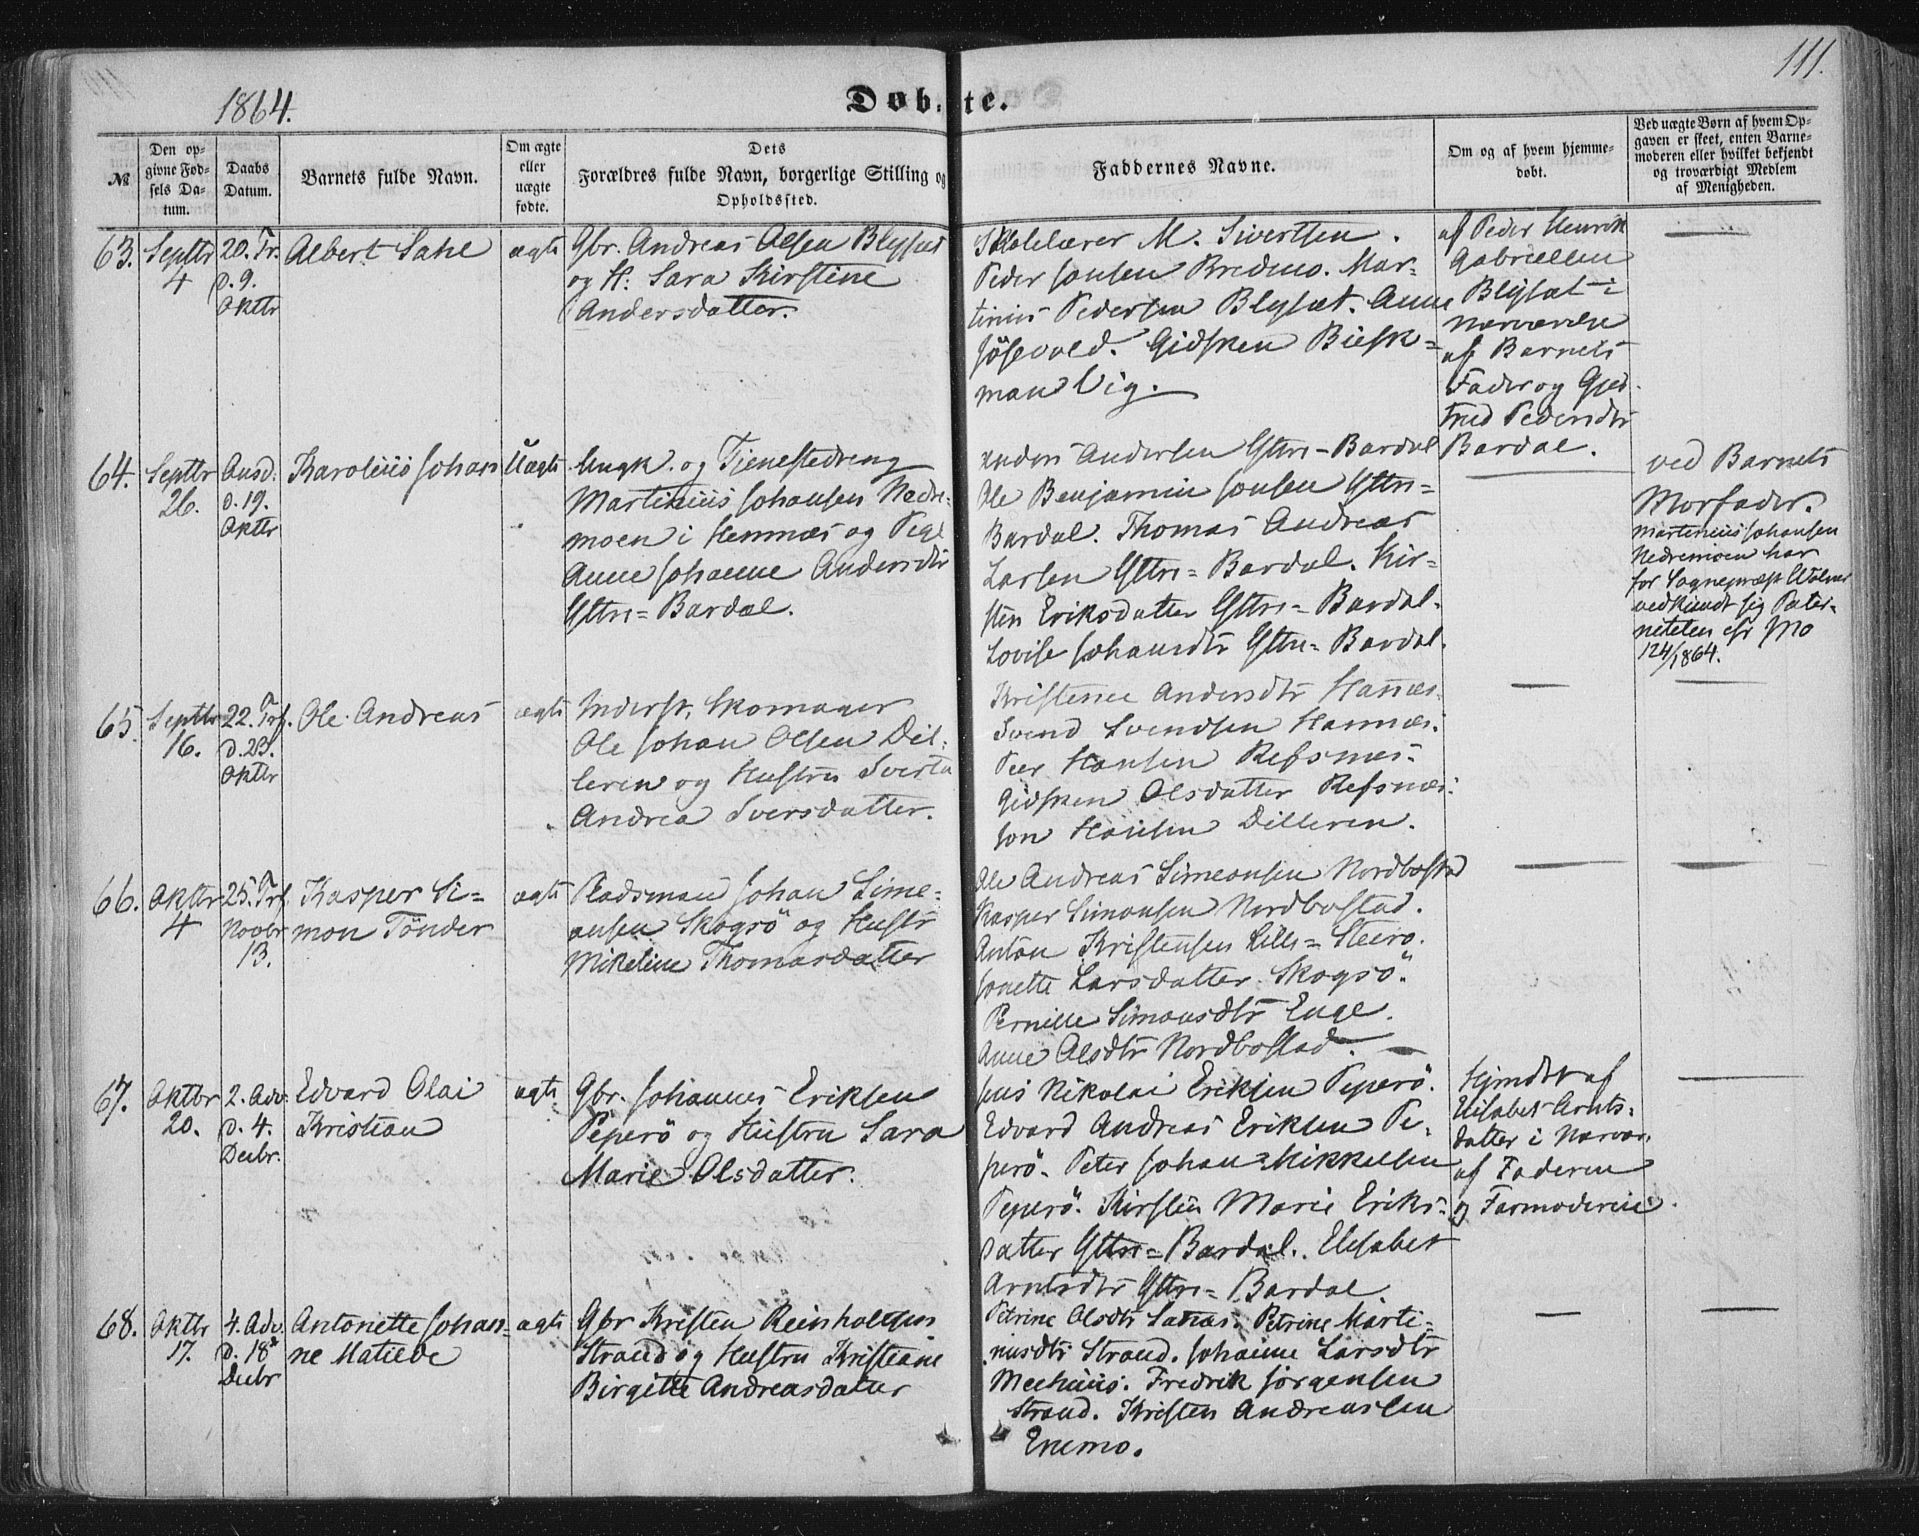 1864.
Døbte.
111.
№
Den op-
givne Fød-
sels Da-
tum.
Daabs
Datum.
Barnets fulde Navn.
Om ægte
eller
uægte
fødte.
Dets
Forældres fulde Navn, borgerlige Stilling og
Opholdssted.
Faddernes Navne.
Om og af hvem hjemme-
døbt.
Ved uægte Børn af hvem Op-
gaven er skeet, enten Barne-
moderen eller hvilket bekjendt
og troværdigt Medlem
af Menigheden.
63.
Septbr
4
20. Tr.
d. 9.
Oktbr
Albert Sahl
ægte
Gbr. Andreas Olsen Blysæt
og H: Sara Kirstine
Andersdatter.
Skolelærer M. Sivertsen.
Peder Jonsen Bredmo. Mar-
tinus Pedersen Blysæt. Anne
Gidsken
man Vig.
af Peder Henrik
Gabrielsen
Blysæt i
Nærværelse
af Barnets
Fader og Gjer-
trud Pedersdtr
Bardal.
64.
Septbr
26.
Onsd.
d. 19.
Oktbr
Karolius Johan
Uægte
Ungk. og Tjenestedreng
Martinius Johansen Nedre-
moen i Hemnæs og Pige
Anne Johanne Andersdtr
Yttre=Bardal.
Anders Andersen Yttre=Bardal
Ole Benjamin Jonsen Yttre=
Bardal. Thomas Andreas
Larsen Yttre=Bardal. Kir-
sten Eriksdatter Yttre=Bardal.
Lovise Johansdtr Yttre=Bardal.
ved Barnets
Morfader.
Martinius Johansen
Nedremoen har
for Sognepræst Wolner
vedkjendt sig Pater-
niteten cfr No
124/1864.
65.
Septbr
16.
22. Trf.
d. 23.
Oktbr
Ole Andreas
ægte
Inderst, Skomager
Ole Johan Olsen Dil-
leren og Hustru
Andrea Iversdatter.
Kristense Andersdtr Hannæs.
Svend Svendsen Hannæs.
Peer Hansen Refsnæs.
Gidsken Olsdatter Refsnæs.
Jon Hansen Dilleren.
66.
Oktbr
4
25. Trf.
Novbr
13.
Kasper Si=
mon Tönder
ægte
Pladsmand Johan Sime=
onsen Skogsö og Hustr
Mikeline Thomasdatter
Ole Andreas Simeonsen Nordbostad
Kasper Simonsen Nordbostad.
Anton Kristensen Lille=Steiro.
Jonette Larsdatter Skogsö.
Pernille Simonsdtr Enge.
Anne Olsdtr Nordbostad.
67.
Oktbr
20.
2. Adv.
d. 4.
Decbr.
Edvard Olai
Kristian
ægte
Gbr. Johannes Eriksen
Peperö og Hustru Sara
Marie Olsdatter.
Jens Nikolai Eriksen Peperö.
Edvard Andreas Eriksen Pe-
perö. Peter Johan Mikkelsen
Peperö. Kirsten Marie Eriks=
datter Yttre=Bardal. Elisabet
Arntsdtr Yttre=Bardal.
Hjmdbt af
Elisabet Arnts=
datter i Nærvær.
af Faderen
og Farmoderen.
68.
Oktbr
17.
4. Adv.
d. 18d
Decbr
Antonette Johan=
ne Matilde
ægte
Gbr Kristen Reinholtsen
Strand og Hustru Kristiane
Birgitte Andreasdatter
Petrine Olsdtr Sanæs. Petrine Marti-
nusdtr Strand. Johanne Larsdtr
Meehuus. Fredrik Jörgensen
Strand. Kristen Andreassen
Enemo.